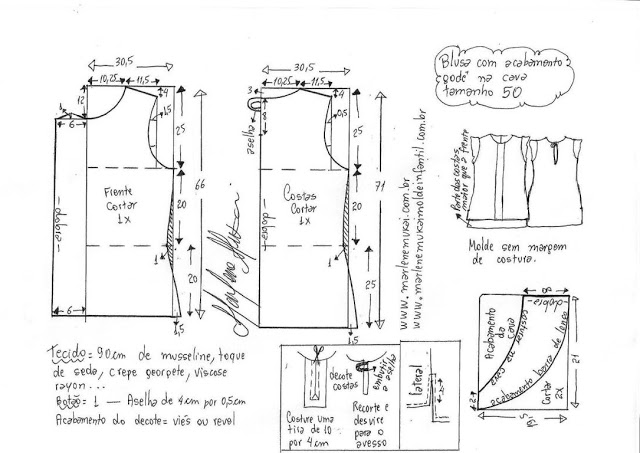 Blusa com acabamento
godê na cava
tamanho 50
30,5
10,25
11,5
12
4
1,5
1
6
25
Frente
cortar
1x
dobra
66
20
20
1
6
1,5
30,5
10,25
11,5
3
4
8
0,5
aselha
25
Costas
Cortar
1x
dobra
71
20
25
1
1,5
www.marlenemukai.com.br
www.marlenemukaimoldeinfantil.com.br
Parte das costas
maior que a frente
Molde sem margem
de costura.
Tecido = 90cm de musseline, toque
de seda, crepe georgete, viscose
rayon...
Botão = 1 — Aselha de 4cm por 0,5cm
Acabamento do decote = viés ou revel
decote
costas
embutir
a aselha
Costure uma
tira de 10
por 4cm
Recorte e
desvire
para o
avesso
lateral
8
dobra
Acabamento
da cava
acabamento barra de lenço
Cortar
2x
21
2